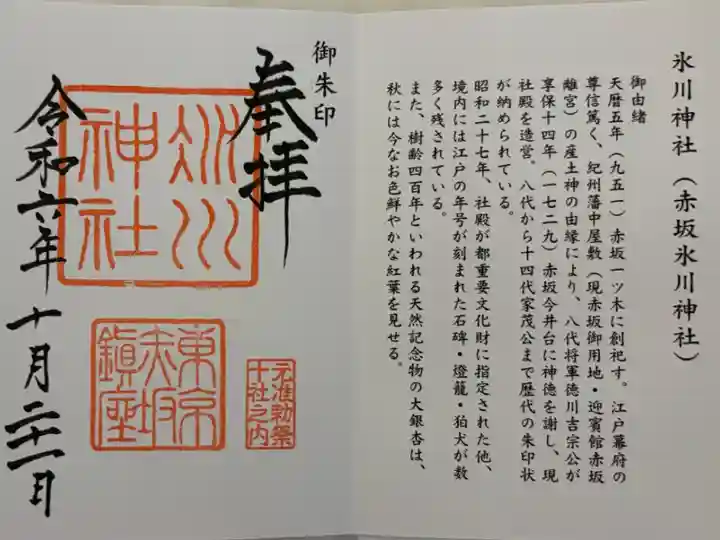 氷川神社（赤坂氷川神社）
御由緒
天暦五年（九五一）赤坂一ツ木に創祀す。江戸幕府の
尊信篤く、紀州藩中屋敷（現赤坂御用地・迎賓館赤坂
離宮）の産土神の由縁により、八代将軍徳川吉宗公が
享保十四年（一七二九）赤坂今井台に神徳を謝し、現
社殿を造営。八代から十四代家茂公まで歴代の朱印状
が納められている。
昭和二十七年、社殿が都重要文化財に指定された他、
境内には江戸の年号が刻まれた石碑・燈籠・狛犬が数
多く残されている。
また、樹齢四百年といわれる天然記念物の大銀杏は、
秋には今なお色鮮やかな紅葉を見せる。
御朱印
奉拝
氷川
神社
元准勅祭
十社之内
東京
赤坂
鎮座
令和六年十月二十一日